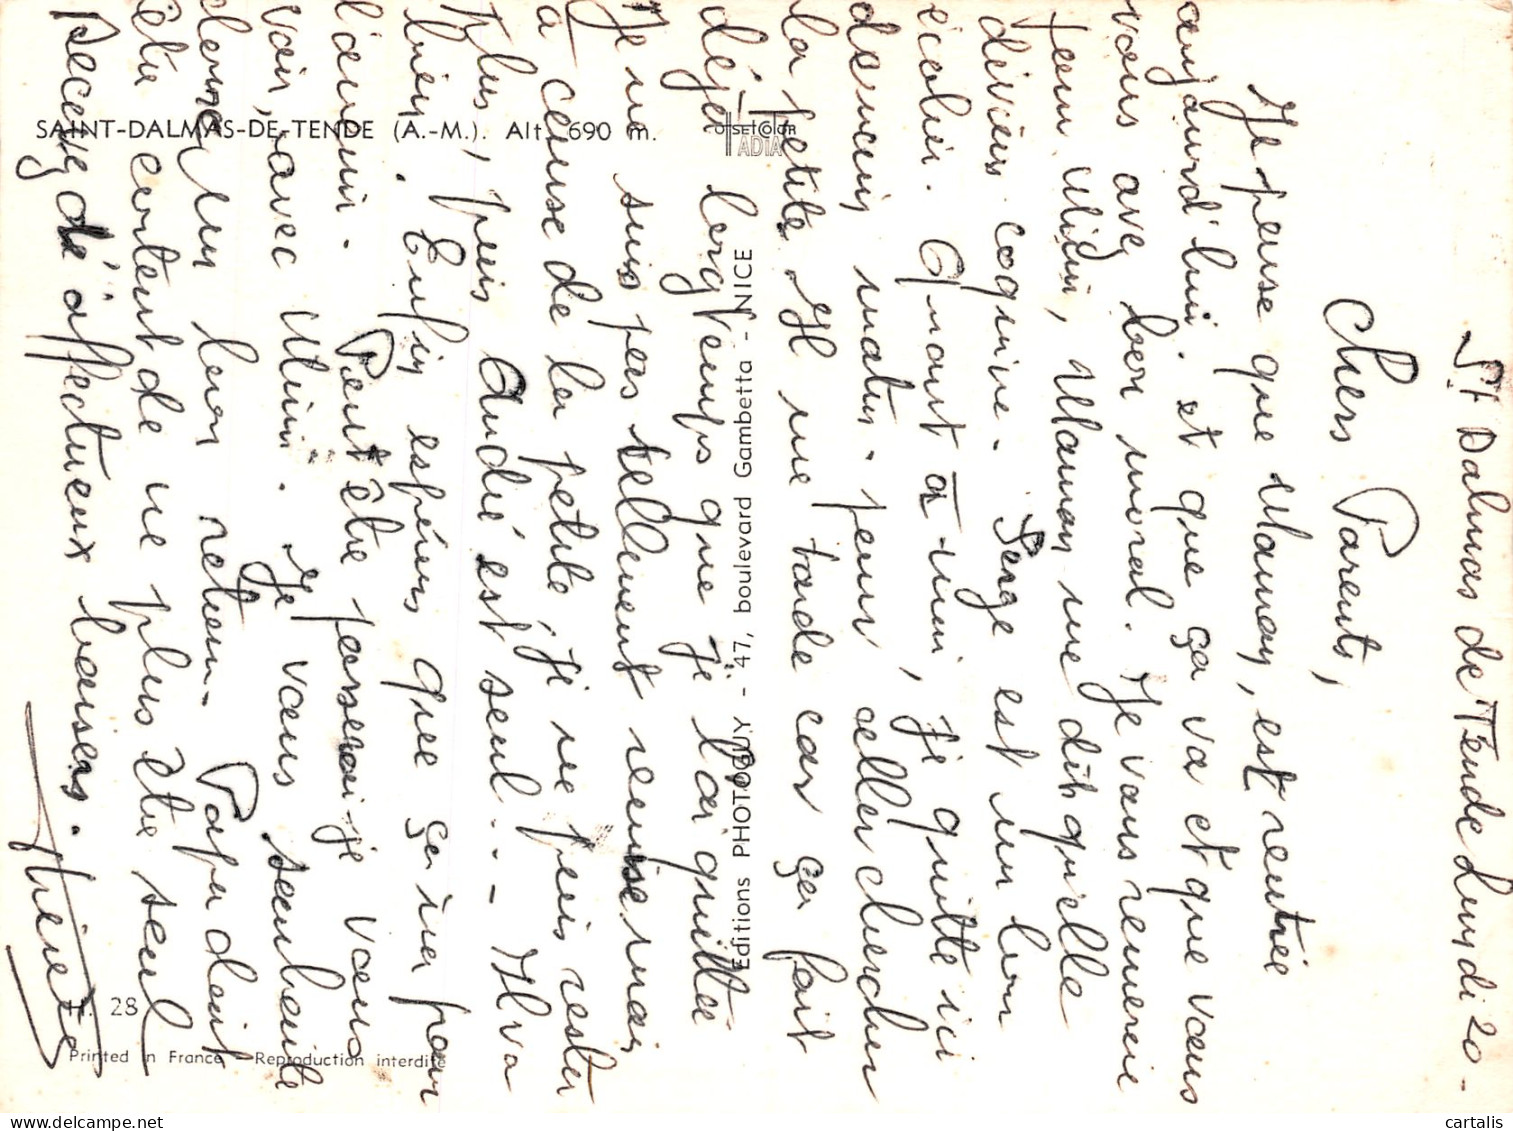 SAINT-DALMAS-DE-TENDE (A.-M.). Alt. 690 m.
OFFSETCOLOR
ADIA
Editions PHOTOGUY - 47, boulevard Gambetta - NICE
28
Printed in France - Reproduction interdite
St Dalmas de Tende Lundi 20 -
Chers Parents,
Je pense que Maman, est rentrée
aujourd'hui. et que ça va et que vous
vous avez bon moral. Je vous remercie
pour Mimi, Maman me dit qu'elle
devient coquine. Serge est un bon
écolier. Quant à mimi, je quitte ici
demain matin. pour aller chercher
la petite Il me tarde car ça fait
déjà longtemps que je l'ai quittée
Je ne suis pas tellement remise mais
à cause de la petite je ne puis rester
plus, puis André est seul.. - Il va
bien. Enfin espérons que ça ira pour
l'avenir. Peut être passerai-je vous
voir, avec Mimi. Je vous souhaite
un bon retour. Papa doit
être content de ne plus être seul
Recevez d'affectueux baisers.
cartalis